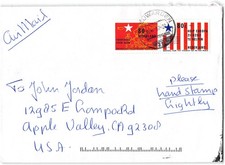 Air Mail
please
hand stamp
lightly
To John Jordan
12985 E Chompo Rd
Apple Valley, CA 92308
U.S.A.